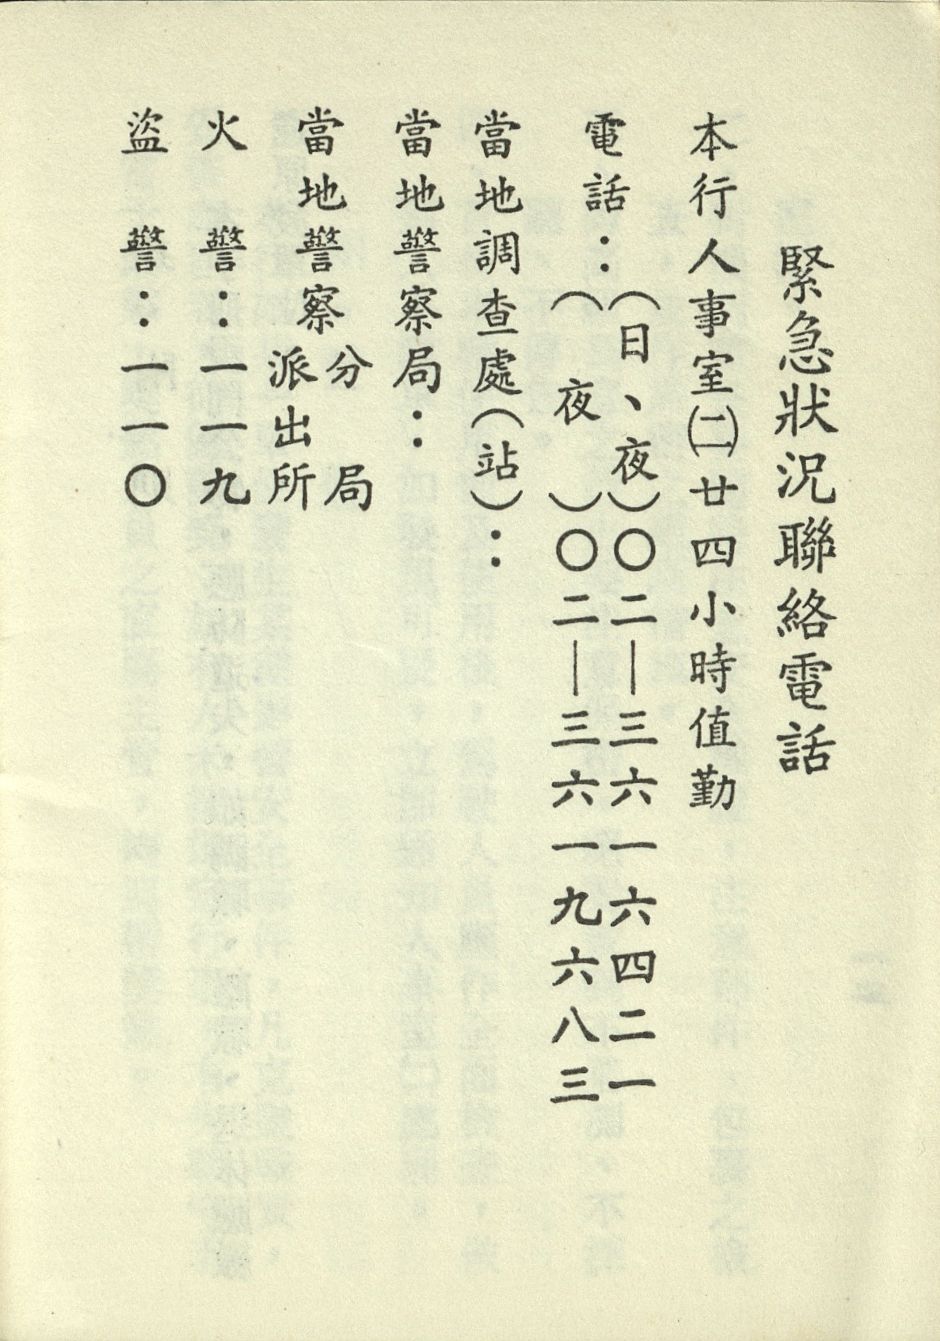 緊急狀況聯絡電話
本行人事室㈡廿四小時值勤
電話：（日、夜）〇二—三六一六四二一
（夜）〇二—三六一九六八三
當地調查處（站）：
當地警察局：
當地警察分局
派出所
火警：一一九
盜警：一一〇